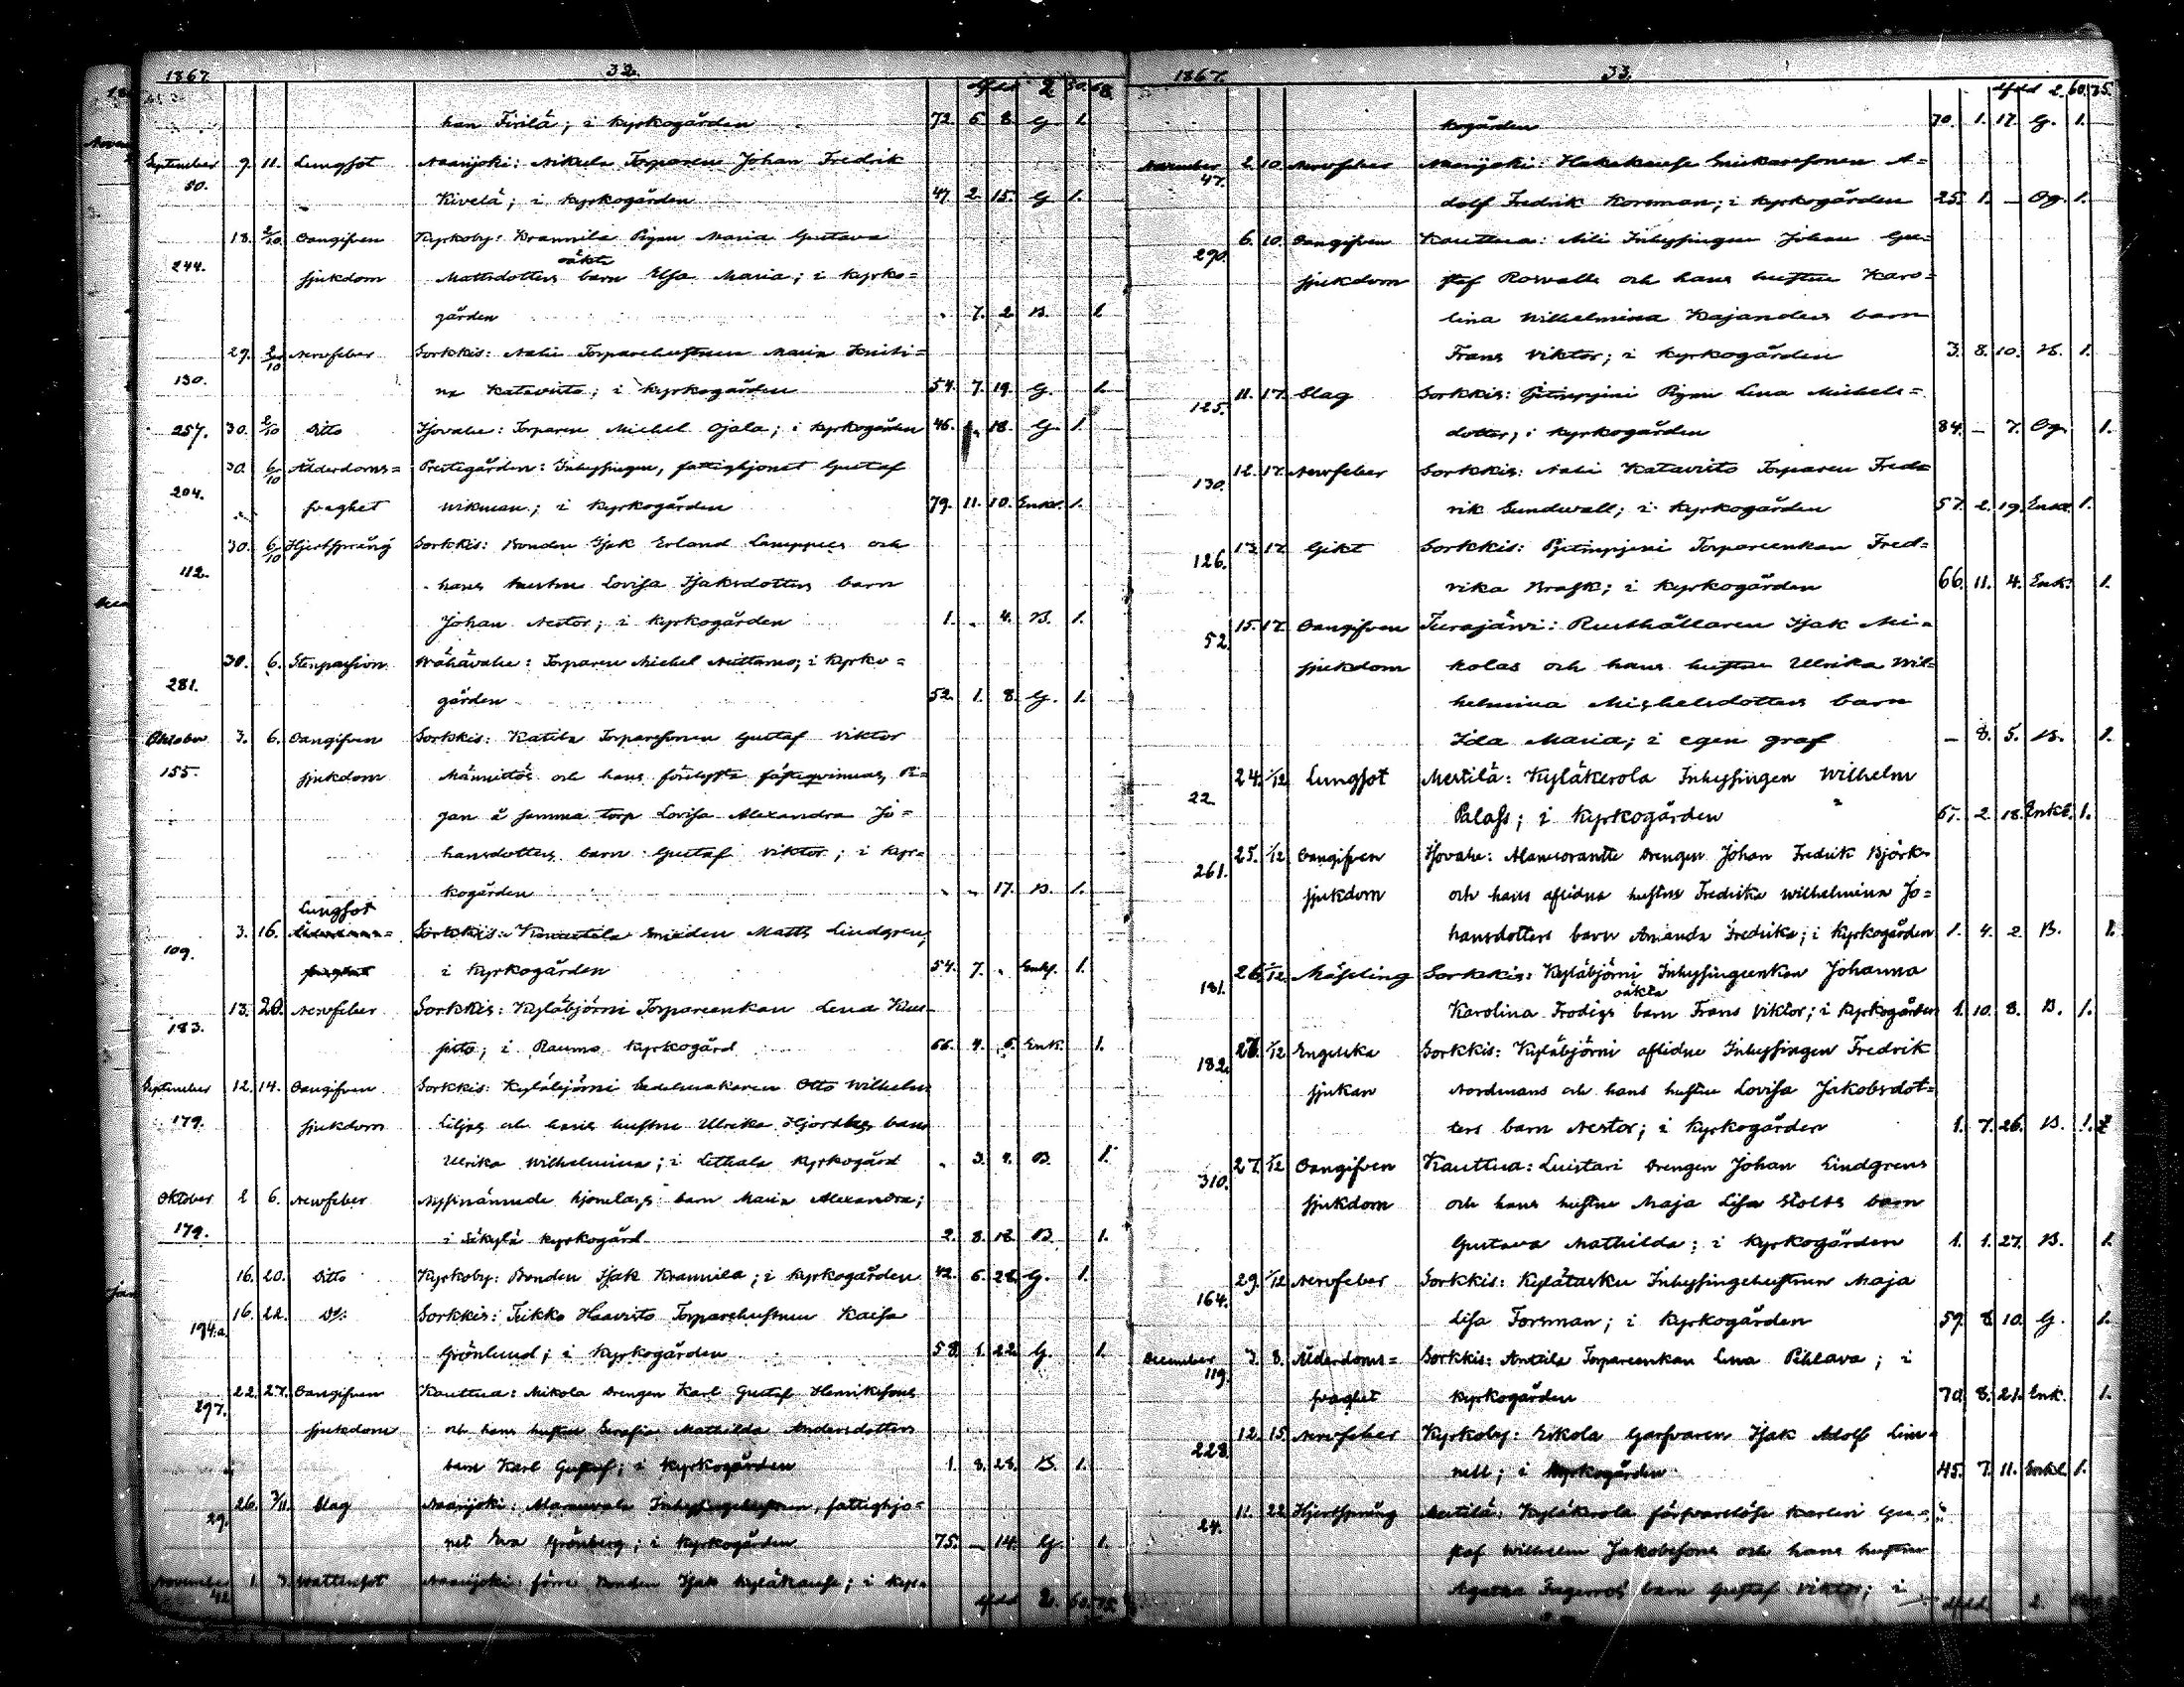 1867. 32.
Afdd 2 50. 68.
han Tirilä; i kyrkogården 72. 6. 8. G. 1.
September 9. 11. Lungsot Naarijoki: Nikula Torparen Johan Fredrik
50. Kivelä; i kyrkogården 47. 2. 15. G. 1.
18. 2/10 Oangifven Kyrkoby: Krannila Pigan Maria Gustava
oäkta
244. sjukdom Mattsdotters barn Elsa Maria; i kyrko=
gården „ 7. 2. B. 1
29. 2/10 Nervfeber Sorkkis: Nahi Torparehustrun Maria Kristi=
130. na Katavisto; i kyrkogården 54. 7. 19. G. 1.
257. 30. 2/10 Ditto Hjovalie: Torparen Michel Ojala; i kyrkogården 46. 18. G. 1.
30. 6/10 Ålderdoms= Prestegården: Inhysingen, fattighjonet Gustaf
204. svaghet Wikman; i kyrkogården 79. 11. 10. Enkl. 1.
30. 6/10 Hjertsprång Sorkkis: Bonden Isak Erland Lamppus och
112. hans hustru Lovisa Isaksdotters barn
Johan Nestor; i kyrkogården 1. „ 4. B. 1.
30. 6. Stenpassion Wähävalie: Torparen Michel Nuttarus; i kyrko=
281. gården 52. 1. 8. G. 1.
Oktober 3. 6. Oangifven Sorkkis: Katila Torparesonen Gustaf Viktor
155. sjukdom Männistös och hans förlofvade fästeqvinnas, Pi=
gan å samma torp Lovisa Alexandra Jo=
hansdotters barn Gustaf Viktor; i kyr=
kogården „ „ 17. B. 1.
Lungsot
109. 3. 16. Ålderdoms= Sorkkis: Smeden Matts Lindgren;
svaghet i kyrkogården 54. 7. „ Enkl. 1.
13. 20. Nervfeber Sorkkis: Kyläbjörni Torpareenkan Lena Kuu=
183. sisto; i Raumo kyrkogård 66. 4. 6. Enk. 1.
September 12. 14. Oangifven Sorkkis: Kyläbjörni Sadelmakaren Otto Wilhelm
179. sjukdom Liljas och hans hustru Ulrika Hjordbys barn
Ulrika Wilhelmina; i Letthala kyrkogård „ 3. 9. B. 1.
Oktober 2 6. Nervfeber Nyssnämnde hjonelags barn Maria Alexandra;
179. i Säkylä kyrkogård 2. 8. 18. B. 1.
16. 20. Ditto Kyrkoby: Bonden Isak Krannila; i kyrkogården 42. 6. 28. G. 1.
16. 22. D:o Sorkkis: Teikko Haavisto Torparehustrun Kaisa
194.a. Grönlund; i kyrkogården 58. 1. 22. G. 1.
22. 27. Oangifven Kauttua: Mikola Drengen Karl Gustaf Henriksons
297. sjukdom och hans hustru Serafia Mathilda Andersdotters
barn Karl Gustaf; i kyrkogården 1. 8. 28. B. 1.
26. 3/11 Slag Naarijoki: Inhysingehustrun, fattighjo=
29. net Eva Grönberg; i kyrkogården 75. — 14. G. 1.
November 1. 3. Wattensot Naarijoki: förre Bonden Isak Kyläkause; i kyr=
42. Afdd 2. 60. 75
1867. 33.
Afdd 2. 60. 75.
kogården 70. 1. 17. G. 1.
November 2. 10. Nervfeber Naarijoki: Hakakause Snickaresonen A=
47. dolf Fredrik Korsman; i kyrkogården 25. 1. — Og. 1.
6. 10. Oangifven Kauttua: Nili Inhysingen Johan Gu=
290. sjukdom staf Roswalls och hans hustru Karo=
lina Wilhelmina Kajanders barn
Frans Viktor; i kyrkogården 3. 8. 10. B. 1.
11. 17. Slag Sorkkis: Pigan Lena Michels=
125. dotter; i kyrkogården 84. — 7. Og. 1.
12. 17. Nervfeber Sorkkis: Nahi Katavisto Torparen Fred=
130. rik Sundwall; i kyrkogården 57. 2. 19. Enkl. 1.
13. 17. Gikt Sorkkis: Torpareenkan Fred=
126. rika Brask; i kyrkogården 66. 11. 4. Enk. 1.
15. 17. Oangifven Turajärvi: Rusthållaren Isak Mi=
52. sjukdom kolas och hans hustru Ulrika Wil=
helmina Michelsdotters barn
Ida Maria; i egen graf — 8. 5. B. 1.
24. 1/12 Lungsot Mestilä: Kyläkerola Inhysingen Wilhelm
22. Palass; i kyrkogården 65. 2. 18. Enkl. 1.
25. 1/12 Oangifven Hjovalie: Drengen Johan Fredrik Björks
261. sjukdom och hans aflidna hustrus Fredrika Wilhelmina Jo=
hansdotters barn Amanda Fredrika; i kyrkogården 1. 4. 2. B. 1.
26. 1/12 Mässling Sorkkis: Kyläbjörni Inhysingeenkan Johanna
oäkta
181. Karolina Frodigs barn Frans Viktor; i kyrkogården 1. 10. 8. B. 1.
26. 1/12 Engelska Sorkkis: Kyläbjörni aflidne Inhysingen Fredrik
182. sjukan Nordmans och hans hustru Lovisa Jakobsdot=
ters barn Nestor; i kyrkogården 1. 7. 26. B. 1.
27. 1/12 Oangifven Kauttua: Luistari Drengen Johan Lindgrens
310. sjukdom och hans hustru Maja Lisa Stolts barn
Gustava Mathilda; i kyrkogården 1. 1. 27. B. 1.
29. 1/12 Nervfeber Sorkkis: Kylätasku Inhysingehustrun Maja
164. Lisa Forsman; i kyrkogården 59. 8. 10. G. 1.
December 3. 8. Ålderdoms= Sorkkis: Anttila Torpareenkan Lena Pihlava; i
119. svaghet kyrkogården 70. 8. 21. Enk. 1.
12. 15. Nervfeber Kyrkoby: Erkola Garfvaren Isak Adolf Lin=
228. nell; i kyrkogården 45. 7. 11. Enkl. 1.
11. 22. Hjertsprång Mestilä: Kyläkerola försvarslöse karlen Gu=
24. staf Wilhelm Jakobsons och hans hustru
Agatha Ingerros barn Gustaf Viktor; i
Afdd 2.